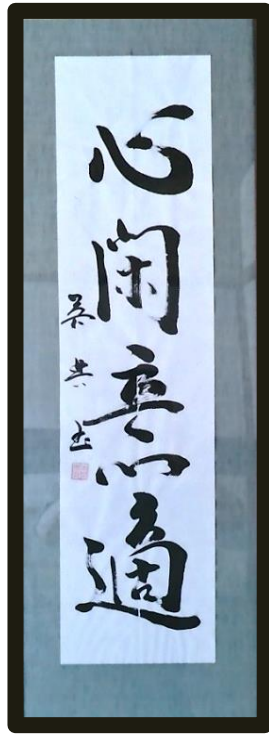 心閑意適